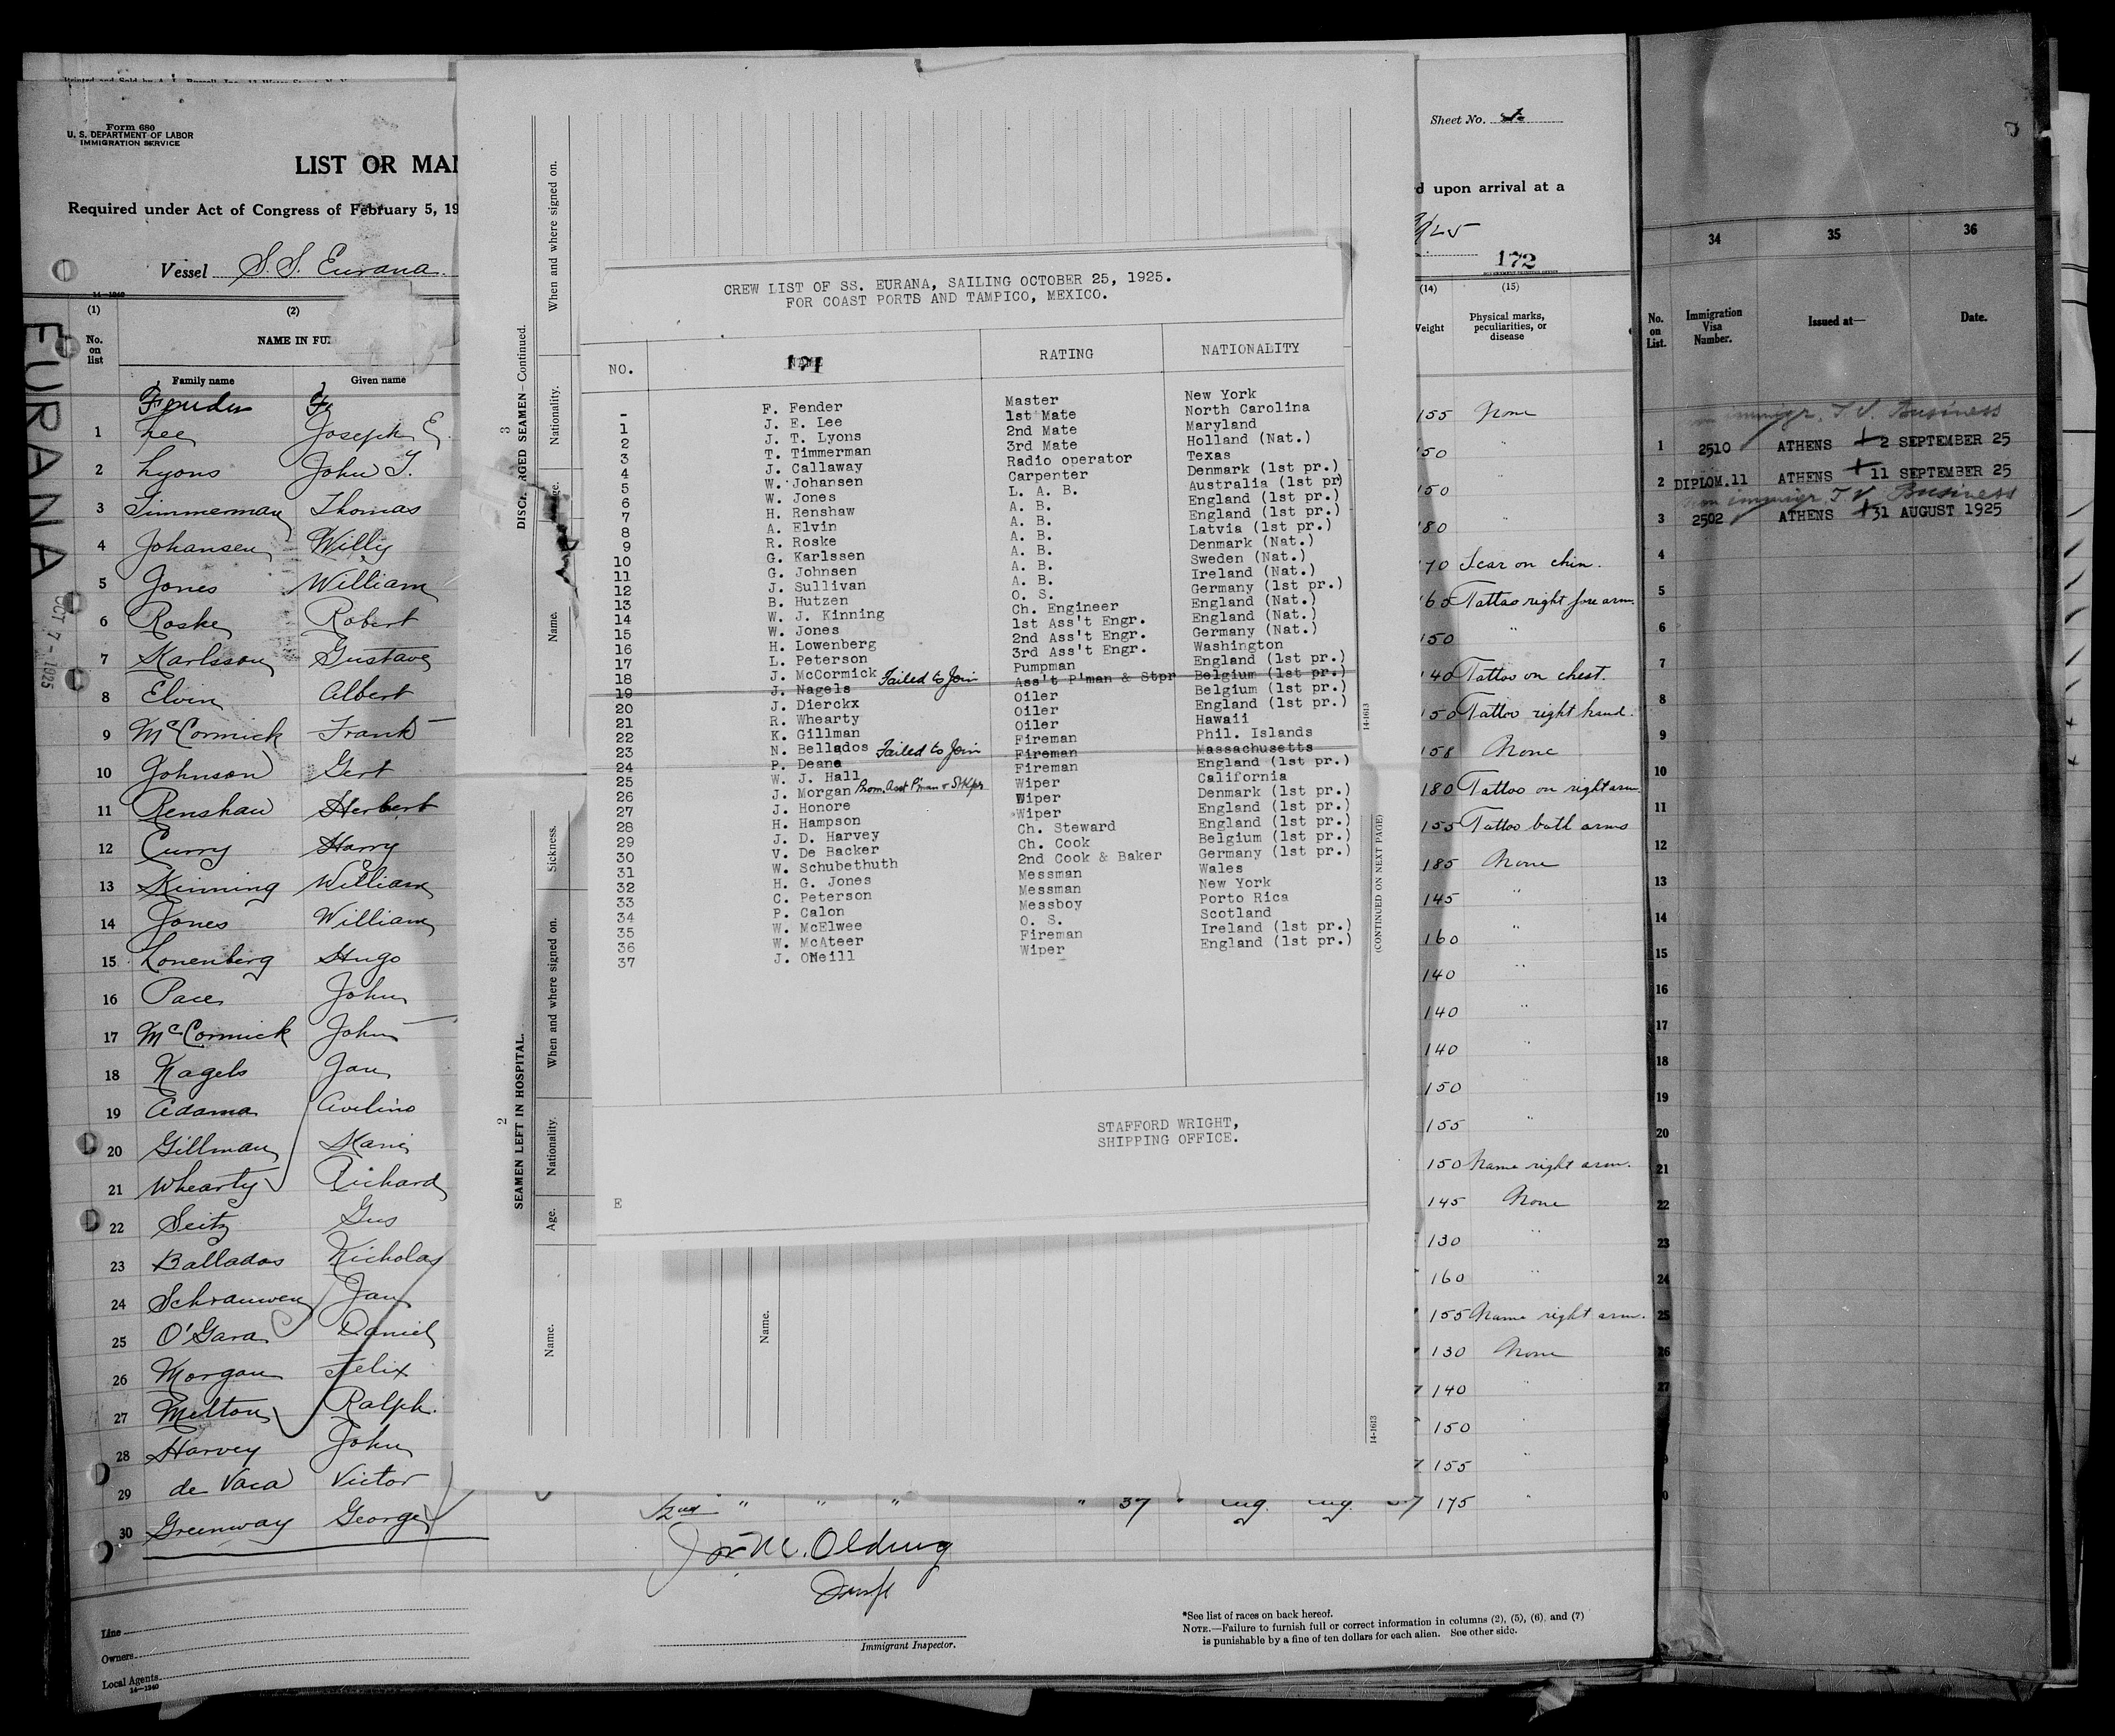 Form 680
U. S. DEPARTMENT OF LABOR
IMMIGRATION SERVICE
LIST OR MAN
Required under Act of Congress of February 5, 19
Vessel S.S. Eurana
EURANA
OCT 7 - 1925
(1) (2)
No. on list
NAME IN FUL
Family name Given name
Fender F.
1 Lee Joseph E.
2 Lyons John T.
3 Timmerman Thomas
4 Johansen Willy
5 Jones William
6 Roske Robert
7 Karlsson Gustave
8 Elvin Albert
9 McCormick Frank
10 Johnson Gert
11 Renshaw Herbert
12 Curry Harry
13 Kinning William
14 Jones William
15 Lonenberg Hugo
16 Pace John
17 McCormick John
18 Nagels Jan
19 Adama Avelino
20 Gillman Kani
21 Whearty Richard
22 Seitz Gus
23 Ballados Nicholas
24 Schrauwen Jan
25 O'Gara Daniel
26 Morgan Felix
27 Melton Ralph
28 Harvey John
29 de Vaca Victor
30 Greenway George
Line
Owners
Local Agents
14-1240
3
DISCHARGED SEAMEN—Continued.
When and where signed on.
Nationality.
Age.
Name.
2
SEAMEN LEFT IN HOSPITAL.
Sickness.
When and where signed on.
Nationality.
Age.
Name.
Name.
CREW LIST OF SS. EURANA, SAILING OCTOBER 25, 1925.
FOR COAST PORTS AND TAMPICO, MEXICO.
NO. 171 RATING NATIONALITY
- F. Fender Master New York
1 J. E. Lee 1st Mate North Carolina
2 J. T. Lyons 2nd Mate Maryland
3 T. Timmerman 3rd Mate Holland (Nat.)
4 J. Callaway Radio operator Texas
5 W. Johansen Carpenter Denmark (1st pr.)
6 W. Jones L. A. B. Australia (1st pr)
7 H. Renshaw A. B. England (1st pr.)
8 A. Elvin A. B. England (1st pr.)
9 R. Roske A. B. Latvia (1st pr.)
10 G. Karlssen A. B. Denmark (Nat.)
11 G. Johnsen A. B. Sweden (Nat.)
12 J. Sullivan A. B. Ireland (Nat.)
13 B. Hutzen O. S. Germany (1st pr.)
14 W. J. Kinning Ch. Engineer England (Nat.)
15 W. Jones 1st Ass't Engr. England (Nat.)
16 H. Lowenberg 2nd Ass't Engr. Germany (Nat.)
17 L. Peterson 3rd Ass't Engr. Washington
18 J. McCormick Pumpman England (1st pr.)
19 J. Nagels Failed to Join Ass't P'man & Stpr Belgium (1st pr.)
20 J. Dierckx Oiler Belgium (1st pr.)
21 R. Whearty Oiler England (1st pr.)
22 K. Gillman Oiler Hawaii
23 N. Bellados Fireman Phil. Islands
24 P. Deana Failed to Join Fireman Massachusetts
25 W. J. Hall Fireman England (1st pr.)
26 J. Morgan Prom. Asst P'man & StKpr Wiper California
27 J. Honore Wiper Denmark (1st pr.)
28 H. Hampson Wiper England (1st pr.)
29 J. D. Harvey Ch. Steward England (1st pr.)
30 V. De Backer Ch. Cook Belgium (1st pr.)
31 W. Schubethuth 2nd Cook & Baker Germany (1st pr.)
32 H. G. Jones Messman Wales
33 C. Peterson Messman New York
34 P. Calon Messboy Porto Rica
35 W. McElwee O. S. Scotland
36 W. McAteer Fireman Ireland (1st pr.)
37 J. ONeill Wiper England (1st pr.)
STAFFORD WRIGHT,
SHIPPING OFFICE.
E
14-1613
(CONTINUED ON NEXT PAGE)
14-1613
2nd " " " " 37 " 175 "
Jos. M. Oldrug
Insp
Immigrant Inspector.
*See list of races on back hereof.
NOTE.—Failure to furnish full or correct information in columns (2), (5), (6), and (7)
is punishable by a fine of ten dollars for each alien. See other side.
Sheet No.
d upon arrival at a
172
(14) (15)
Weight
Physical marks, peculiarities, or disease
155 None
150 "
150
180 "
170 Scar on chin.
165 Tattoo right fore arm.
150 "
140 Tattoo on chest.
150 Tattoo right hand.
158 None
180 Tattoo on right arm.
155 Tattoo both arms
185 None
145 "
160 "
140 "
140 "
140 "
150 "
155 "
150 Name right arm.
145 None
130 "
160 "
155 Name right arm.
130 None
140 "
150 "
155 "
34 35 36
No. on List.
Immigration Visa Number.
Issued at—
Date.
non immigr. T.V. Business
1 2510 ATHENS 2 SEPTEMBER 25
2 DIPLOM.11 ATHENS 11 SEPTEMBER 25
non immigr. T.V. Business
3 2502 ATHENS 31 AUGUST 1925
4
5
6
7
8
9
10
11
12
13
14
15
16
17
18
19
20
21
22
23
24
25
26
27